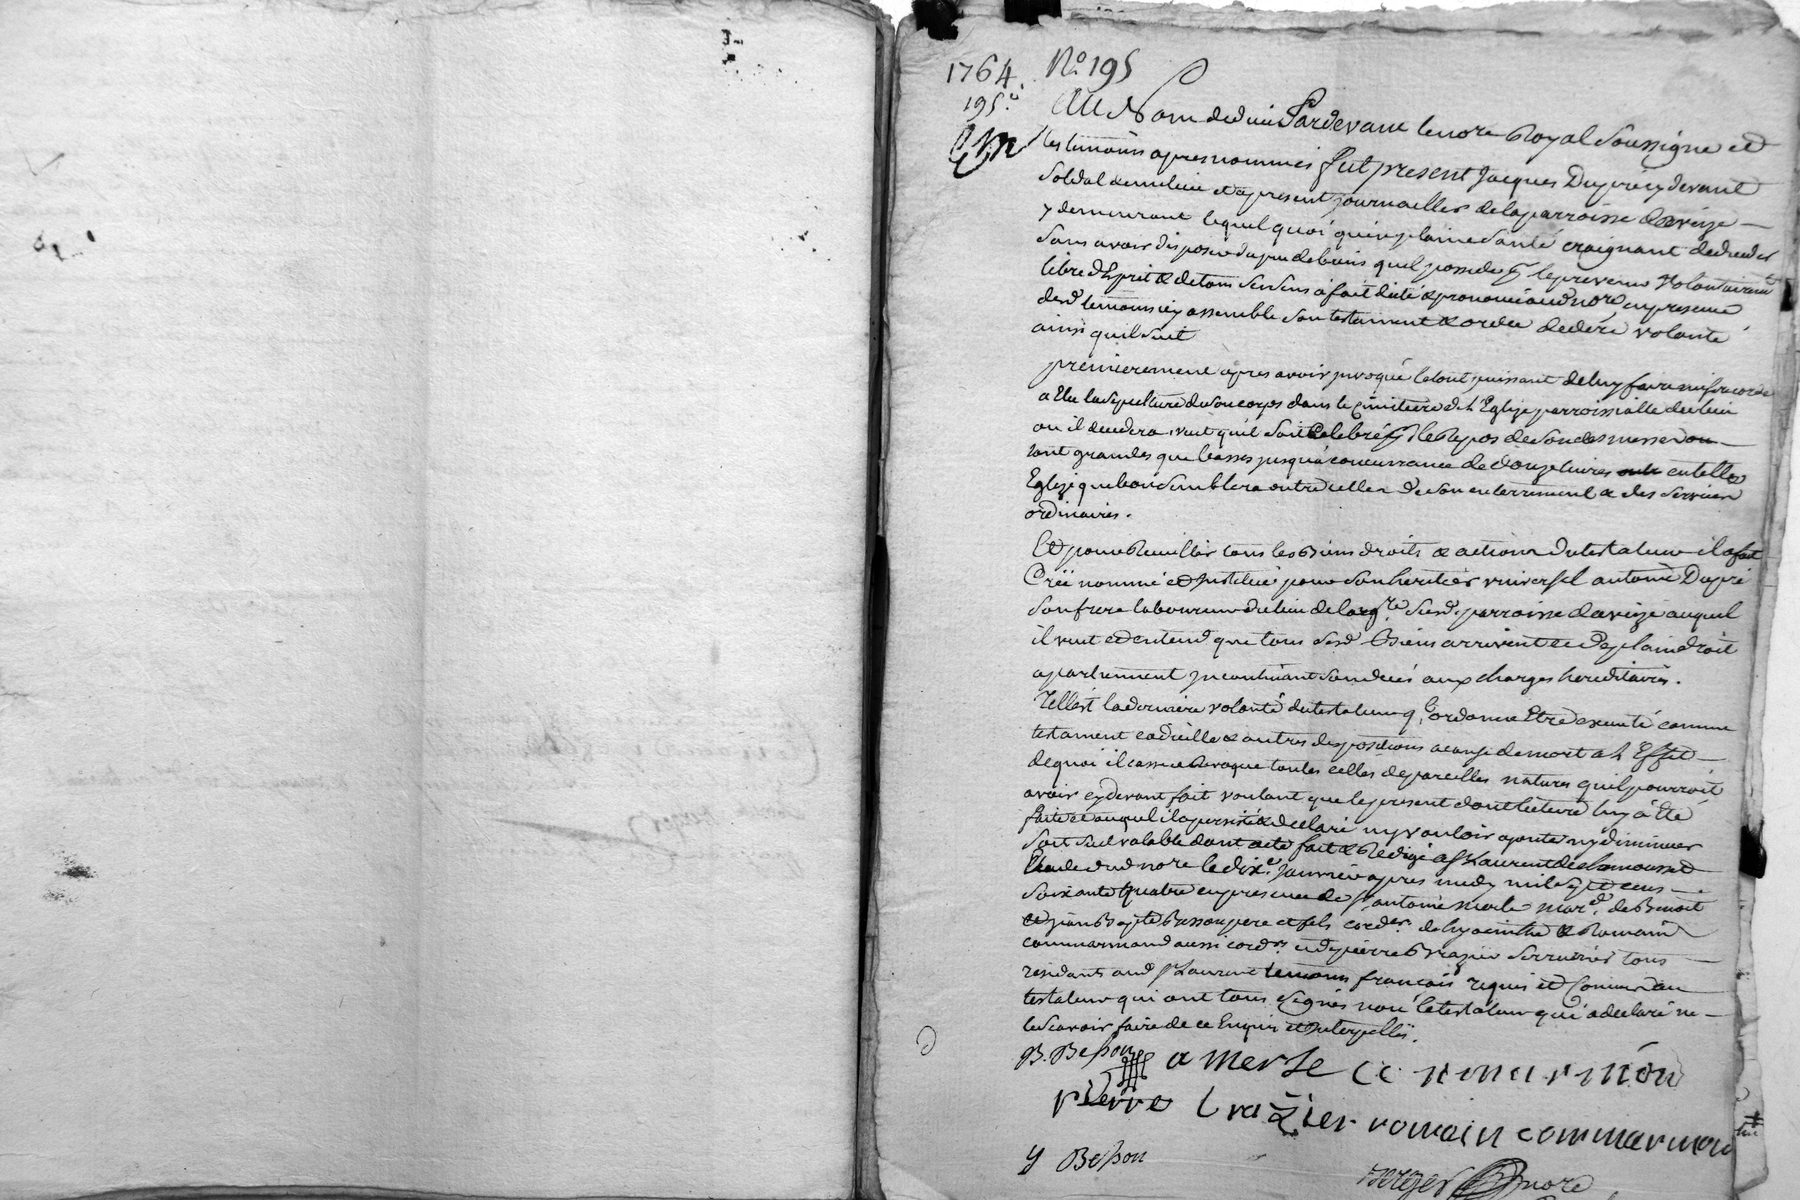 1764 No. 195
195.e
Au Nom de dieu Pardevant le nore Royal Soussigné et
les temoins apres nommés fut present Jacques Dupré cy devant
Soldat de milice et apresent journallier de la parroisse d'aveize
y demeurant lequel quoi qu'en plaine santé craignant de deceder
sans avoir disposé du peu de biens quil possede le prevenu volontairemt
libre d'Esprit & de tous ses sens à fait dicté & prononcé aud nore, en presence
desd temoins icy assemblé son testament & ordce de dere volonté
ainsi quil suit
premierement apres avoir jnvoqué le tout puissant de luy faire misericorde
a Elu la sepulture de son corps dans le cimitiere de l'Eglize parroissialle du lieu
ou il decedera veut qu'il soit Celebré pr le Repos de son des messes
tant grandes que basses jusqu'a concurrance de douze livres en telles
Eglize que bon semblera outre celles de son enterrement & des services
ordinaires.
Et pour Recuillir tous les Biens droits & actions du testateur il a fait
Créé nommé et Jnstitué pour son heritier universel antoine Dupré
son frere laboureur du lieu de susd. parroisse d'aveize auquel
il veut et entend que tous sesd Biens arrivent et de plain droit
apartiennent jncontinant son decés aux charges hereditaires.
Telle est la derniere volonté du testateur ql ordonne Etre executé comme
testament codicille & autres dispositions a cause de mort a l'Effet
de quoi il casse et Revoque toutes celles de pareilles natures quil pourroit
avoir cy devant fait voulant que le present dont lecture luy à Eté
faite et auquel il a persisté & declaré ny vouloir ajouter ny diminuer
soit seul valable dont acte fait & Redigé a St Laurent de chamousset
Etude dud nore le dixe. Janvier apres midy mil sept cens
soixante quatre en presence de sr antoine merle mard. de Benoit
et jean Bapte Besson pere et fils corders. de hyacinthe & Romain
commarmond aussi cordrs et de pierre Brazier serrurier tous
residants aud St Laurent temoins francois requis et Connus du
testateur qui ont tous signés non le testateur qui a declaré ne
le sçavoir faire de ce Enquis et Jnterpellé.
B. Besson a merle commarmon
pierre brazier romain commarmon
y Besson
Berger nore